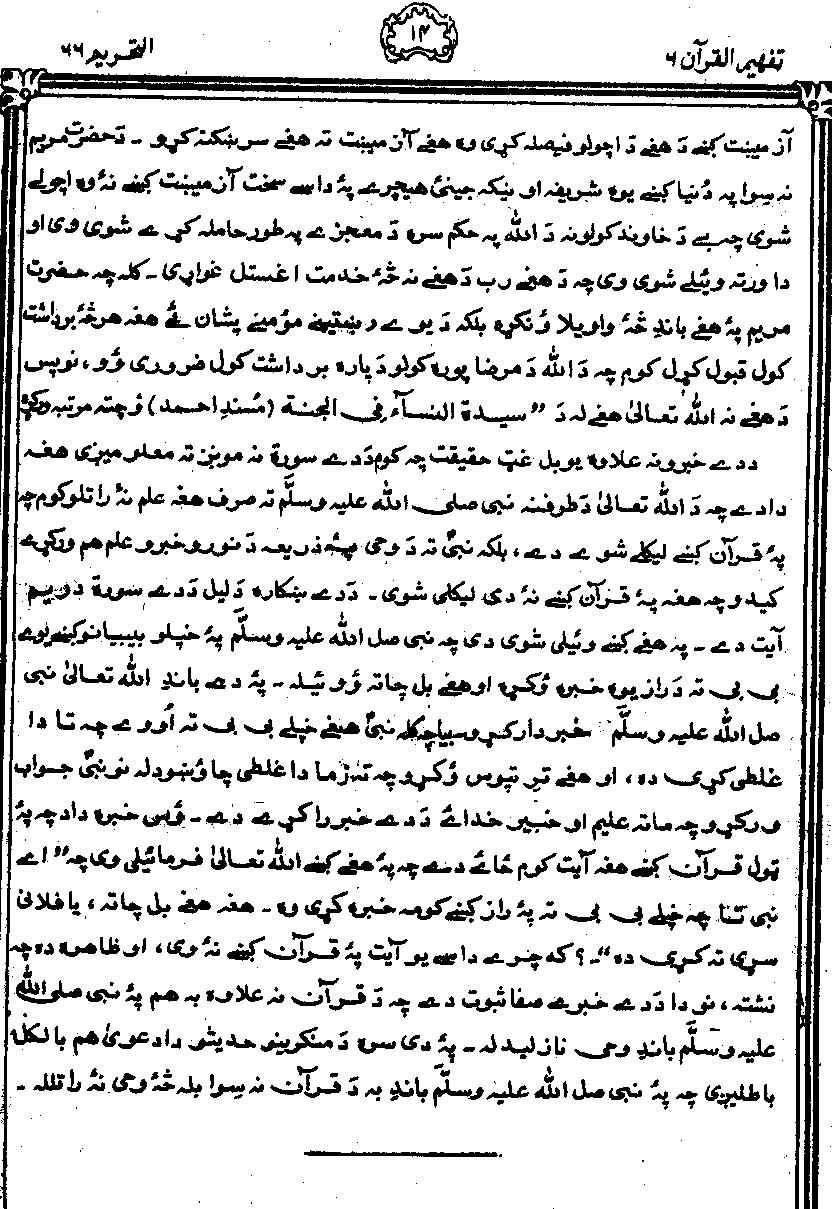 تفهیم القرآن ۶
۱۴
التحریم ۶۶
آزمیښت کښے دَ هغے دَ اچولو فیصله کړی وه هغے آزمیښت ته هغے سر ښکته کړو - دَ حضرت مریم
نه سِوا په دُنیا کښے یوه شریفه او نیکه جینئ هیچرے پهٔ داسے سخت آزمیښت کښے نهٔ وه اچولے
شوی چه بے دَ خاوند کولو نه دَ الله په حکم سره دَ معجزے په طور حامله کړے شوی وی او
دا ورته وئیلے شوی وی چه دَ هغے رب دَ هغے نه څهٔ خدمت اغستل غواړی - کله چه حضرت
مریم پهٔ هغے باندِ څهٔ واویلا ؤ نکړه بلکه دَ یوے رښتینے مؤمنے پشان ئے هغه هر څهٔ برداشت
کول قبول کړل کوم چه دَ الله دَ مرضا پوره کولو دَ پاره برداشت کول ضروری ؤو، نو پس
دَ هغے نه الله تعالیٰ هغے له دَ "سیدة النسآء فی الجنة (مُسندِ احمد) ؤچته مرتبه ورکړه
ددے خبرو نه علاوه یو بل غټ حقیقت چه کوم دَ دے سورة نه مونږ ته معلومیږی هغه
دا دے چه دَ الله تعالیٰ دَ طرفنه نبی صلی الله علیه وسلّم ته صرف هغه علم نهٔ راتلو کوم چه
پهٔ قرآن کښے لیکلے شوے دے، بلکه نبیؐ ته دَ وحی پهٔ ذریعه دَ نورو خبرو علم هم ورکړے
کیدو چه هغه پهٔ قرآن کښے نهٔ دی لیکلی شوی - دَ دے ښکاره دَلیل دَ دے سورة دریم
آیت دے - په هغے کښے وئیلی شوی دی چه نبی صل الله علیه وسلّم پهٔ خپلو بیبیانو کښے یوے
بی بی ته دَ راز یوه خبره ؤکړه او هغے بل چاته ؤوئیله - پهٔ دے باندِ الله تعالیٰ نبی
صل الله علیه وسلّم خبردار کړو بیا چه کله نبیؐ هغے خپلے بی بی ته اُوورے چه تا دا
غلطی کړی ده، او هغے ترِ تپوس ؤکړو چه تهٔ زما دا غلطی چا ؤښودله نو نبیؐ جواب
ورکړو چه ماته علیم او خبیر خداے دَ دے خبر راکړے دے - ؤس خبره داده چه پهٔ
ټول قرآن کښے هغه آیت کوم ځاے دے چه پهٔ هغے کښے الله تعالیٰ فرمائیلی وی چه "اے
نبی تنا چه خپلے بی بی ته پهٔ راز کښے کومه خبره کړی وه - هغه هغے بل چاته، یا فلانی
سړی ته کړی ده"- ؟ که چرے داسے یو آیت پهٔ قرآن کښے نهٔ وی، او ظاهره ده چه
نشته، نو دا دَ دے خبرے صفا ثبوت دے چه دَ قرآن نه علاوه به هم پهٔ نبی صلی الله
علیه وسلّم باندِ وحی نازلیدله - پهٔ دی سره دَ منکرینو حدیثو دا دعویٰ هم بالکل
باطلیږی چه پهٔ نبی صل الله علیه وسلّم باندِ به دَ قرآن نه سِوا بله څهٔ وحی نهٔ راتلله -